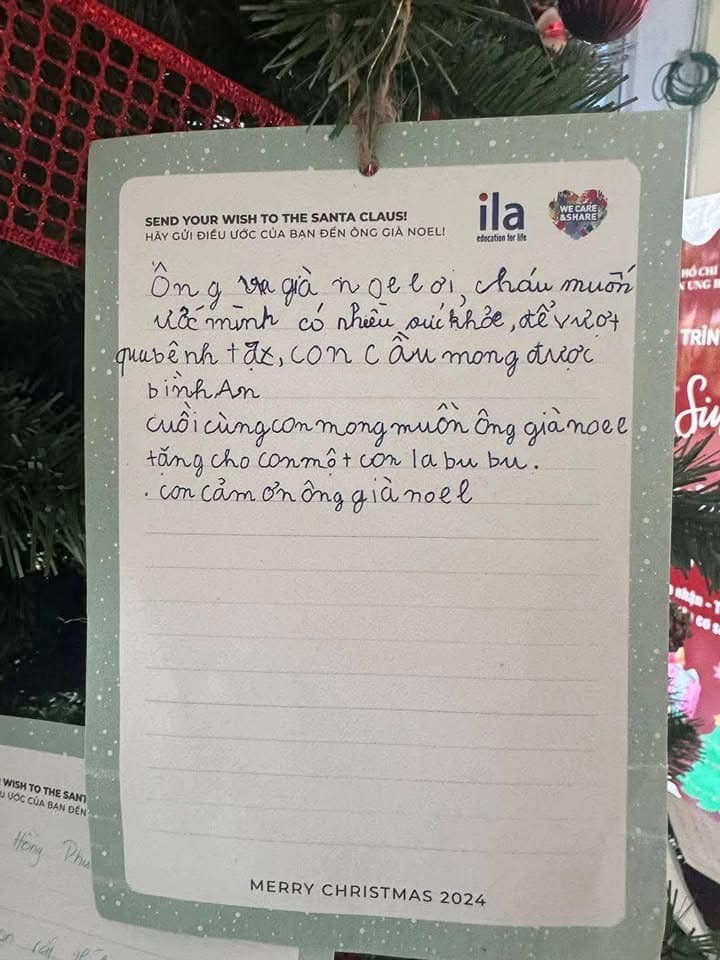 SEND YOUR WISH TO THE SANTA CLAUS!
HÃY GỬI ĐIỀU ƯỚC CỦA BẠN ĐẾN ÔNG GIÀ NOEL!
ila
education for life
WE CARE
&SHARE
Ông già noel ơi, cháu muốn
ước mình có nhiều sức khỏe, để vượt
qua bệnh tật, con cầu mong được
bình An
cuồi cùng con mong muốn ông già noel
tặng cho con một con la bu bu.
. con cảm ơn ông già noel
MERRY CHRISTMAS 2024
WISH TO THE SANT
ƯỚC CỦA BẠN ĐẾN
Hồng
HỒ CHÍ
TRÌN